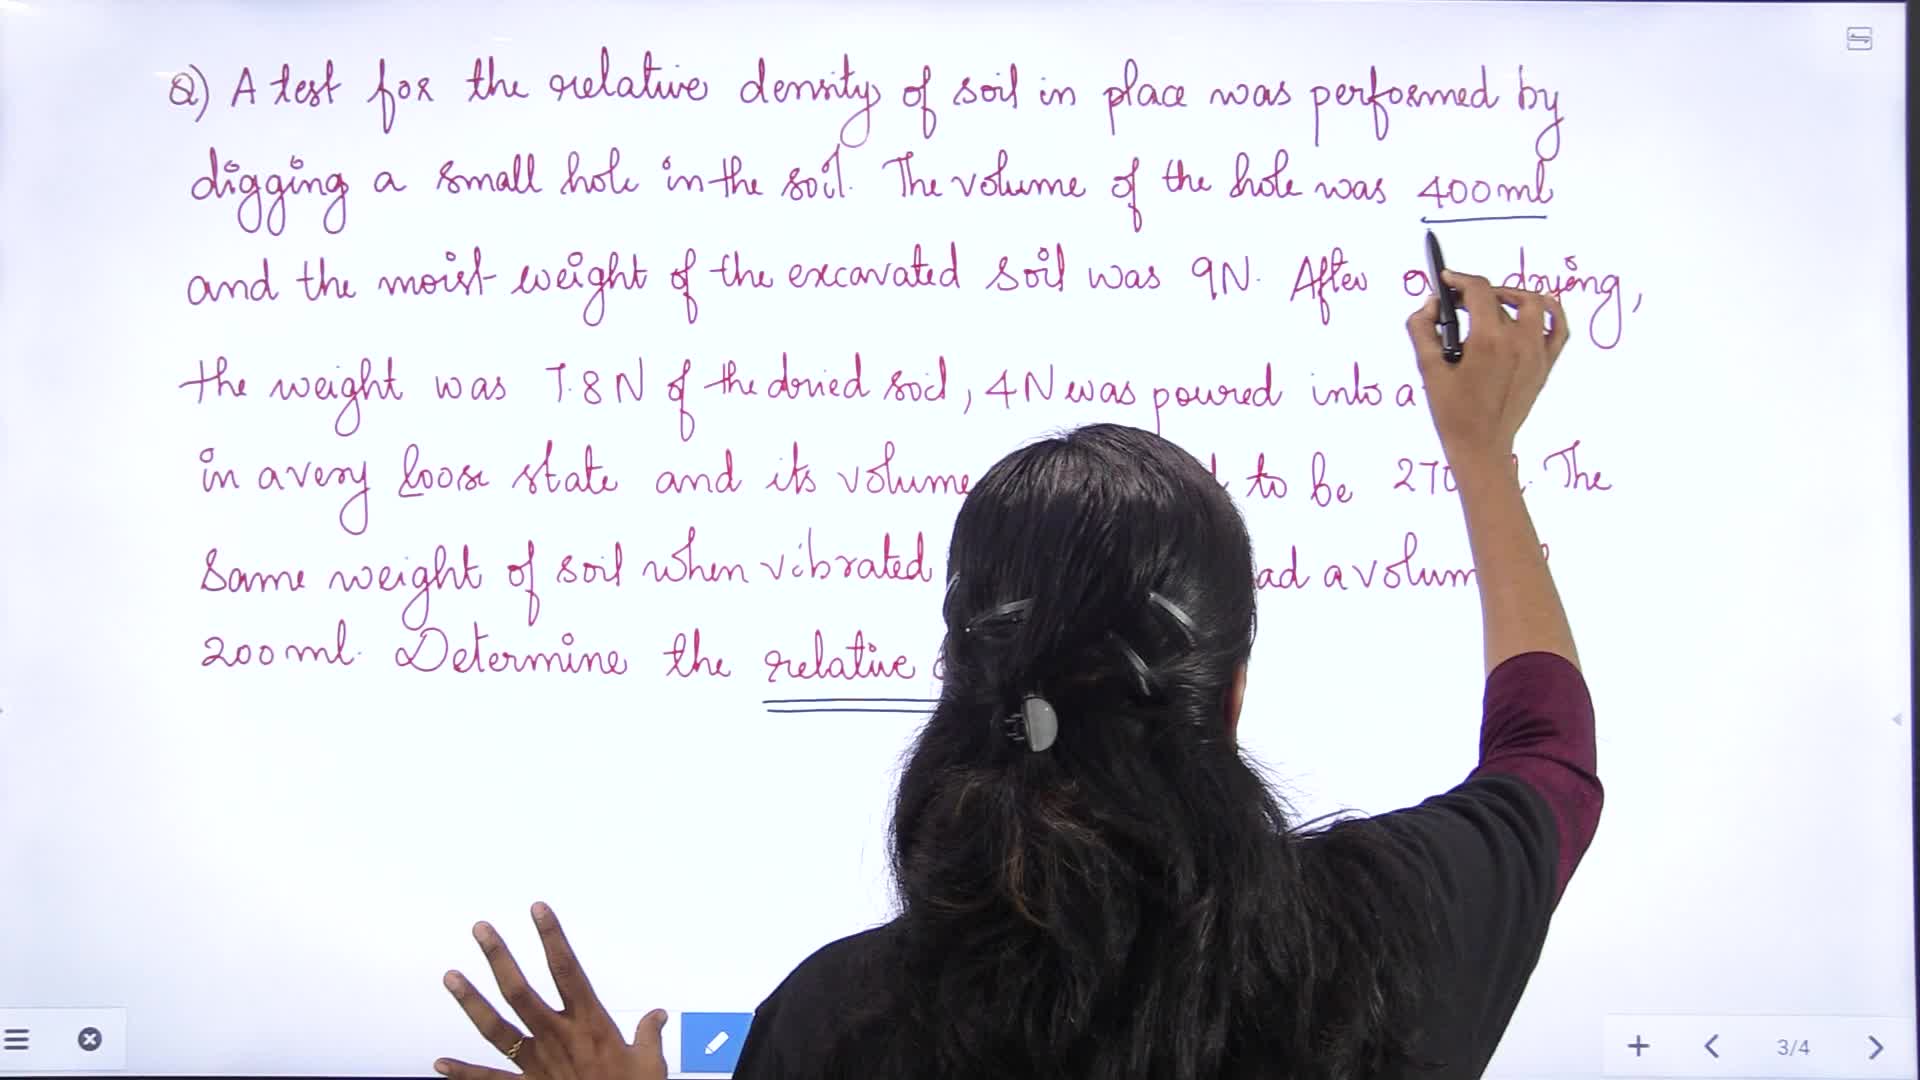 Q) A test for the relative density of soil in place was performed by
digging a small hole in the soil. The volume of the hole was 400ml
and the moist weight of the excavated soil was 9N. After drying,
the weight was 7.8N of the dried soil, 4N was poured into a
in a very loose state and its volume to be The
Same weight of soil when vibrated a volume
200ml. Determine the relative
3/4